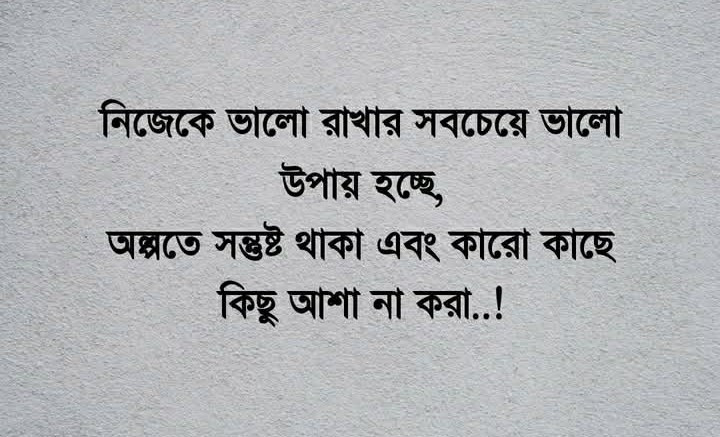 নিজেকে ভালো রাখার সবচেয়ে ভালো
উপায় হচ্ছে,
অল্পতে সন্তুষ্ট থাকা এবং কারো কাছে
কিছু আশা না করা..!